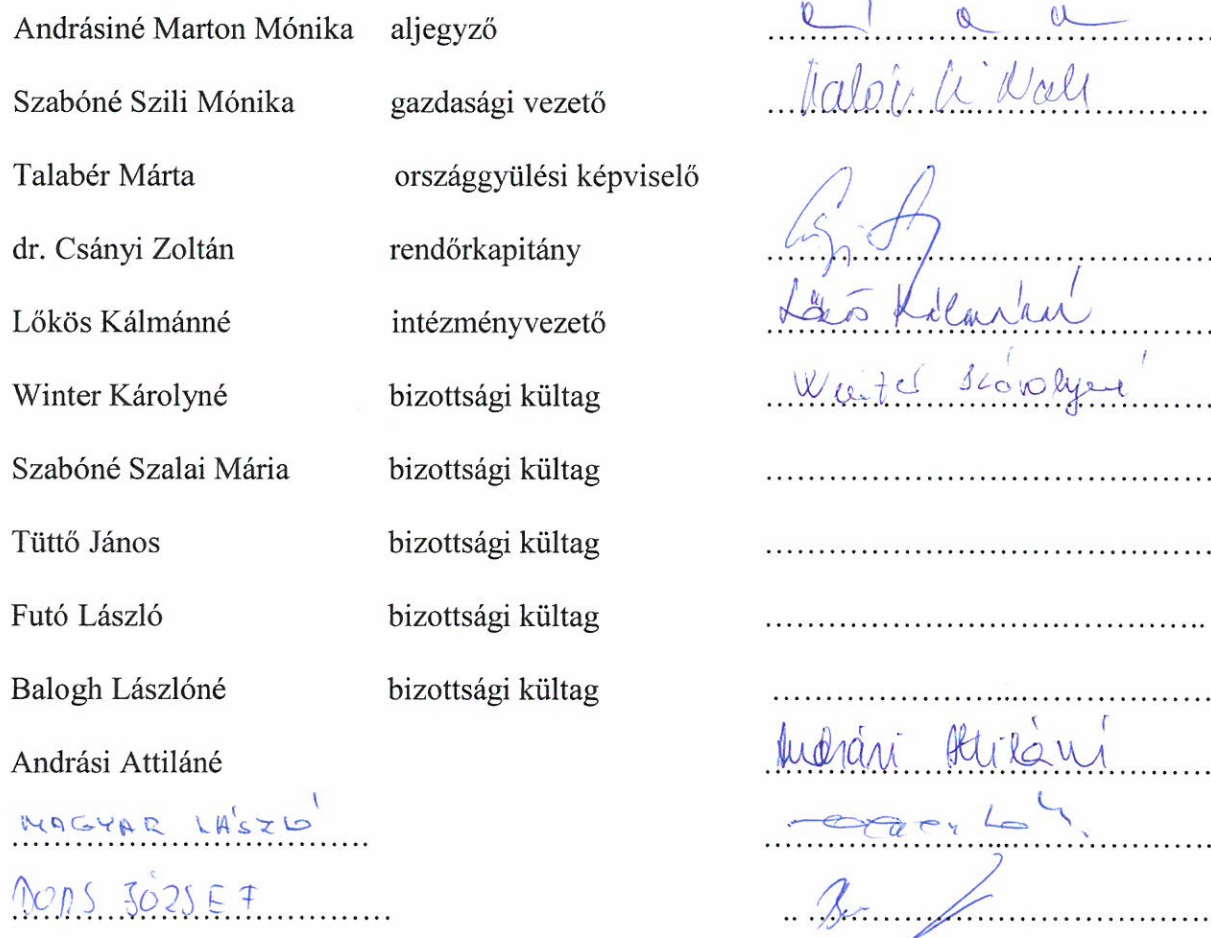 Andrásiné Marton Mónika aljegyző ........................................
Szabóné Szili Mónika gazdasági vezető ........................................
Talabér Márta országgyülési képviselő
dr. Csányi Zoltán rendőrkapitány ........................................
Lőkös Kálmánné intézményvezető Lőkös Kálmánné
Winter Károlyné bizottsági kültag Winter Károlyné
Szabóné Szalai Mária bizottsági kültag ........................................
Tüttő János bizottsági kültag ........................................
Futó László bizottsági kültag ........................................
Balogh Lászlóné bizottsági kültag ........................................
Andrási Attiláné Andrási Attiláné
MAGYAR LÁSZLÓ
JÓZSEF